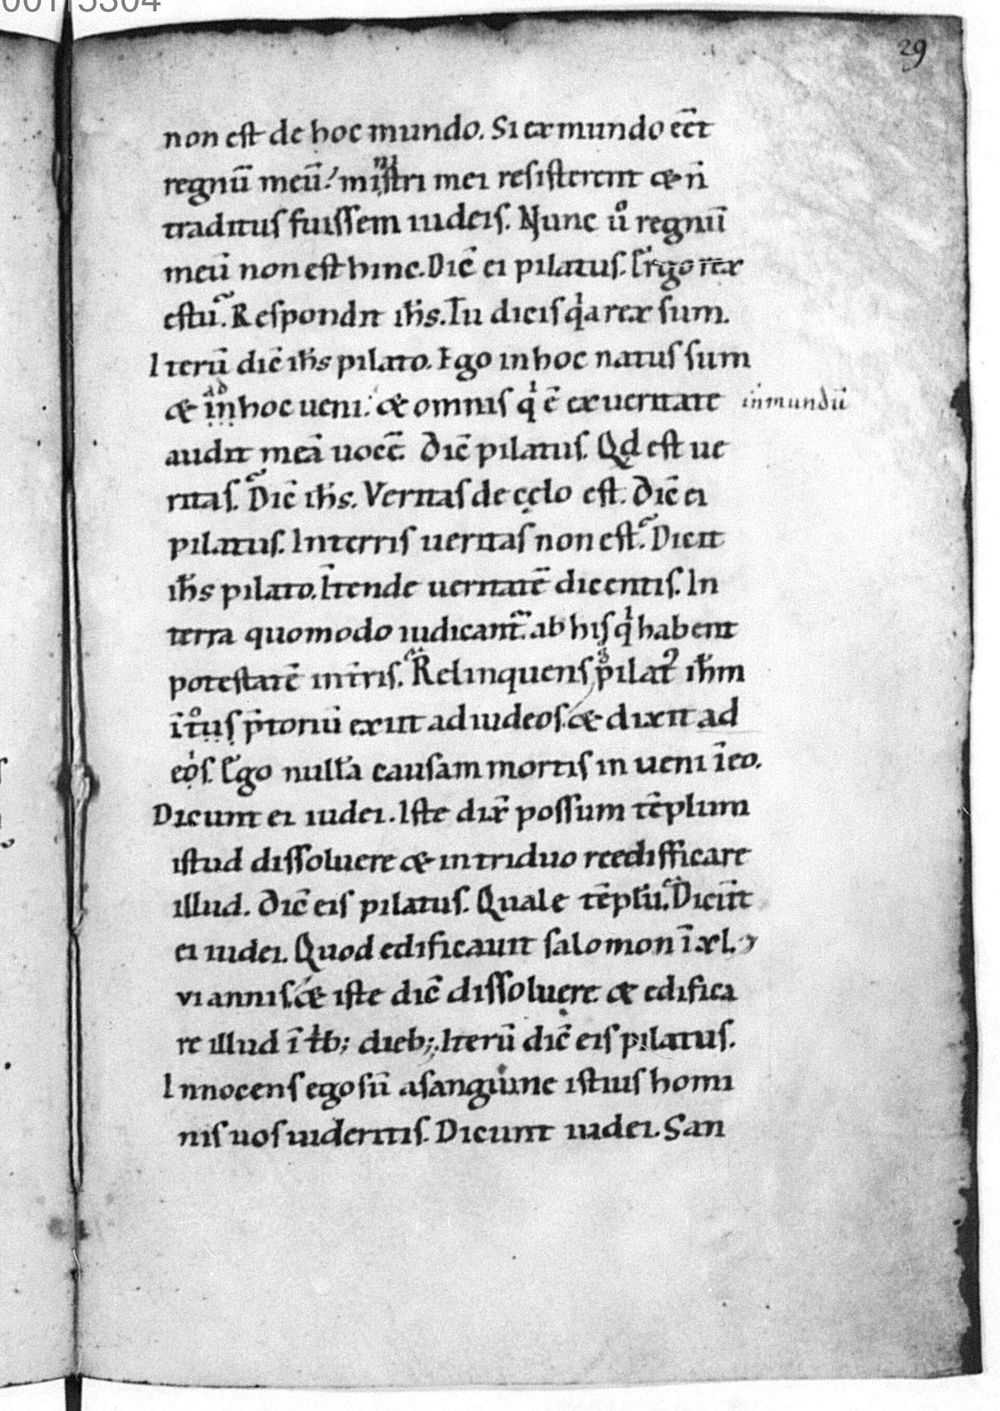 29
non est de hoc mundo. Si ex mundo eēt
regnū meū. minr̄i mei resisterent & n̄
traditus fuissem iudeis. Nunc ů regnū
meū non est hinc. Dic̄ ei pilatus. Ergo rex
es tu. Respondit ih̄s. Tu dicis qͥa rex sum.
Iterū dic̄ ih̄s pilato. Ego in hoc natus sum
& ad hoc ueni. & omnis qͥ ē ex ueritate inmundū
audit meā uocē. Dic̄ pilatus. Qd est ue
ritas. Dic̄ ih̄s. Veritas de cęlo est. Dic̄ ei
pilatus. In terris ueritas non est. Dicit
ih̄s pilato. Itende ueritatē dicentis. In
terra quomodo iudicant̄ ab his qͥ habent
potestatē in tr̄is. Relinquens g̊ pilat᷒ ih̄m
īt᷒us p̄toriū exiit ad iudeos. & dixit ad
eos. Ego nullā causam mortis inueni ī eo.
Dicunt ei iudei. Iste dix̄ possum tēplum
istud dissoluere & in triduo reedifficare
illud. Dic̄ eis pilatus. Quale tēplū. Dicūt
ei iudei. Quod edificauit salomon ī xl.
vi annis. & iste dic̄ dissoluere & edifica
re illud ī t̄b; dieb;. Iterū dic̄ eis pilatus.
Innocens ego sū a sanguine istius homi
nis uos uideritis. Dicunt iudei. San